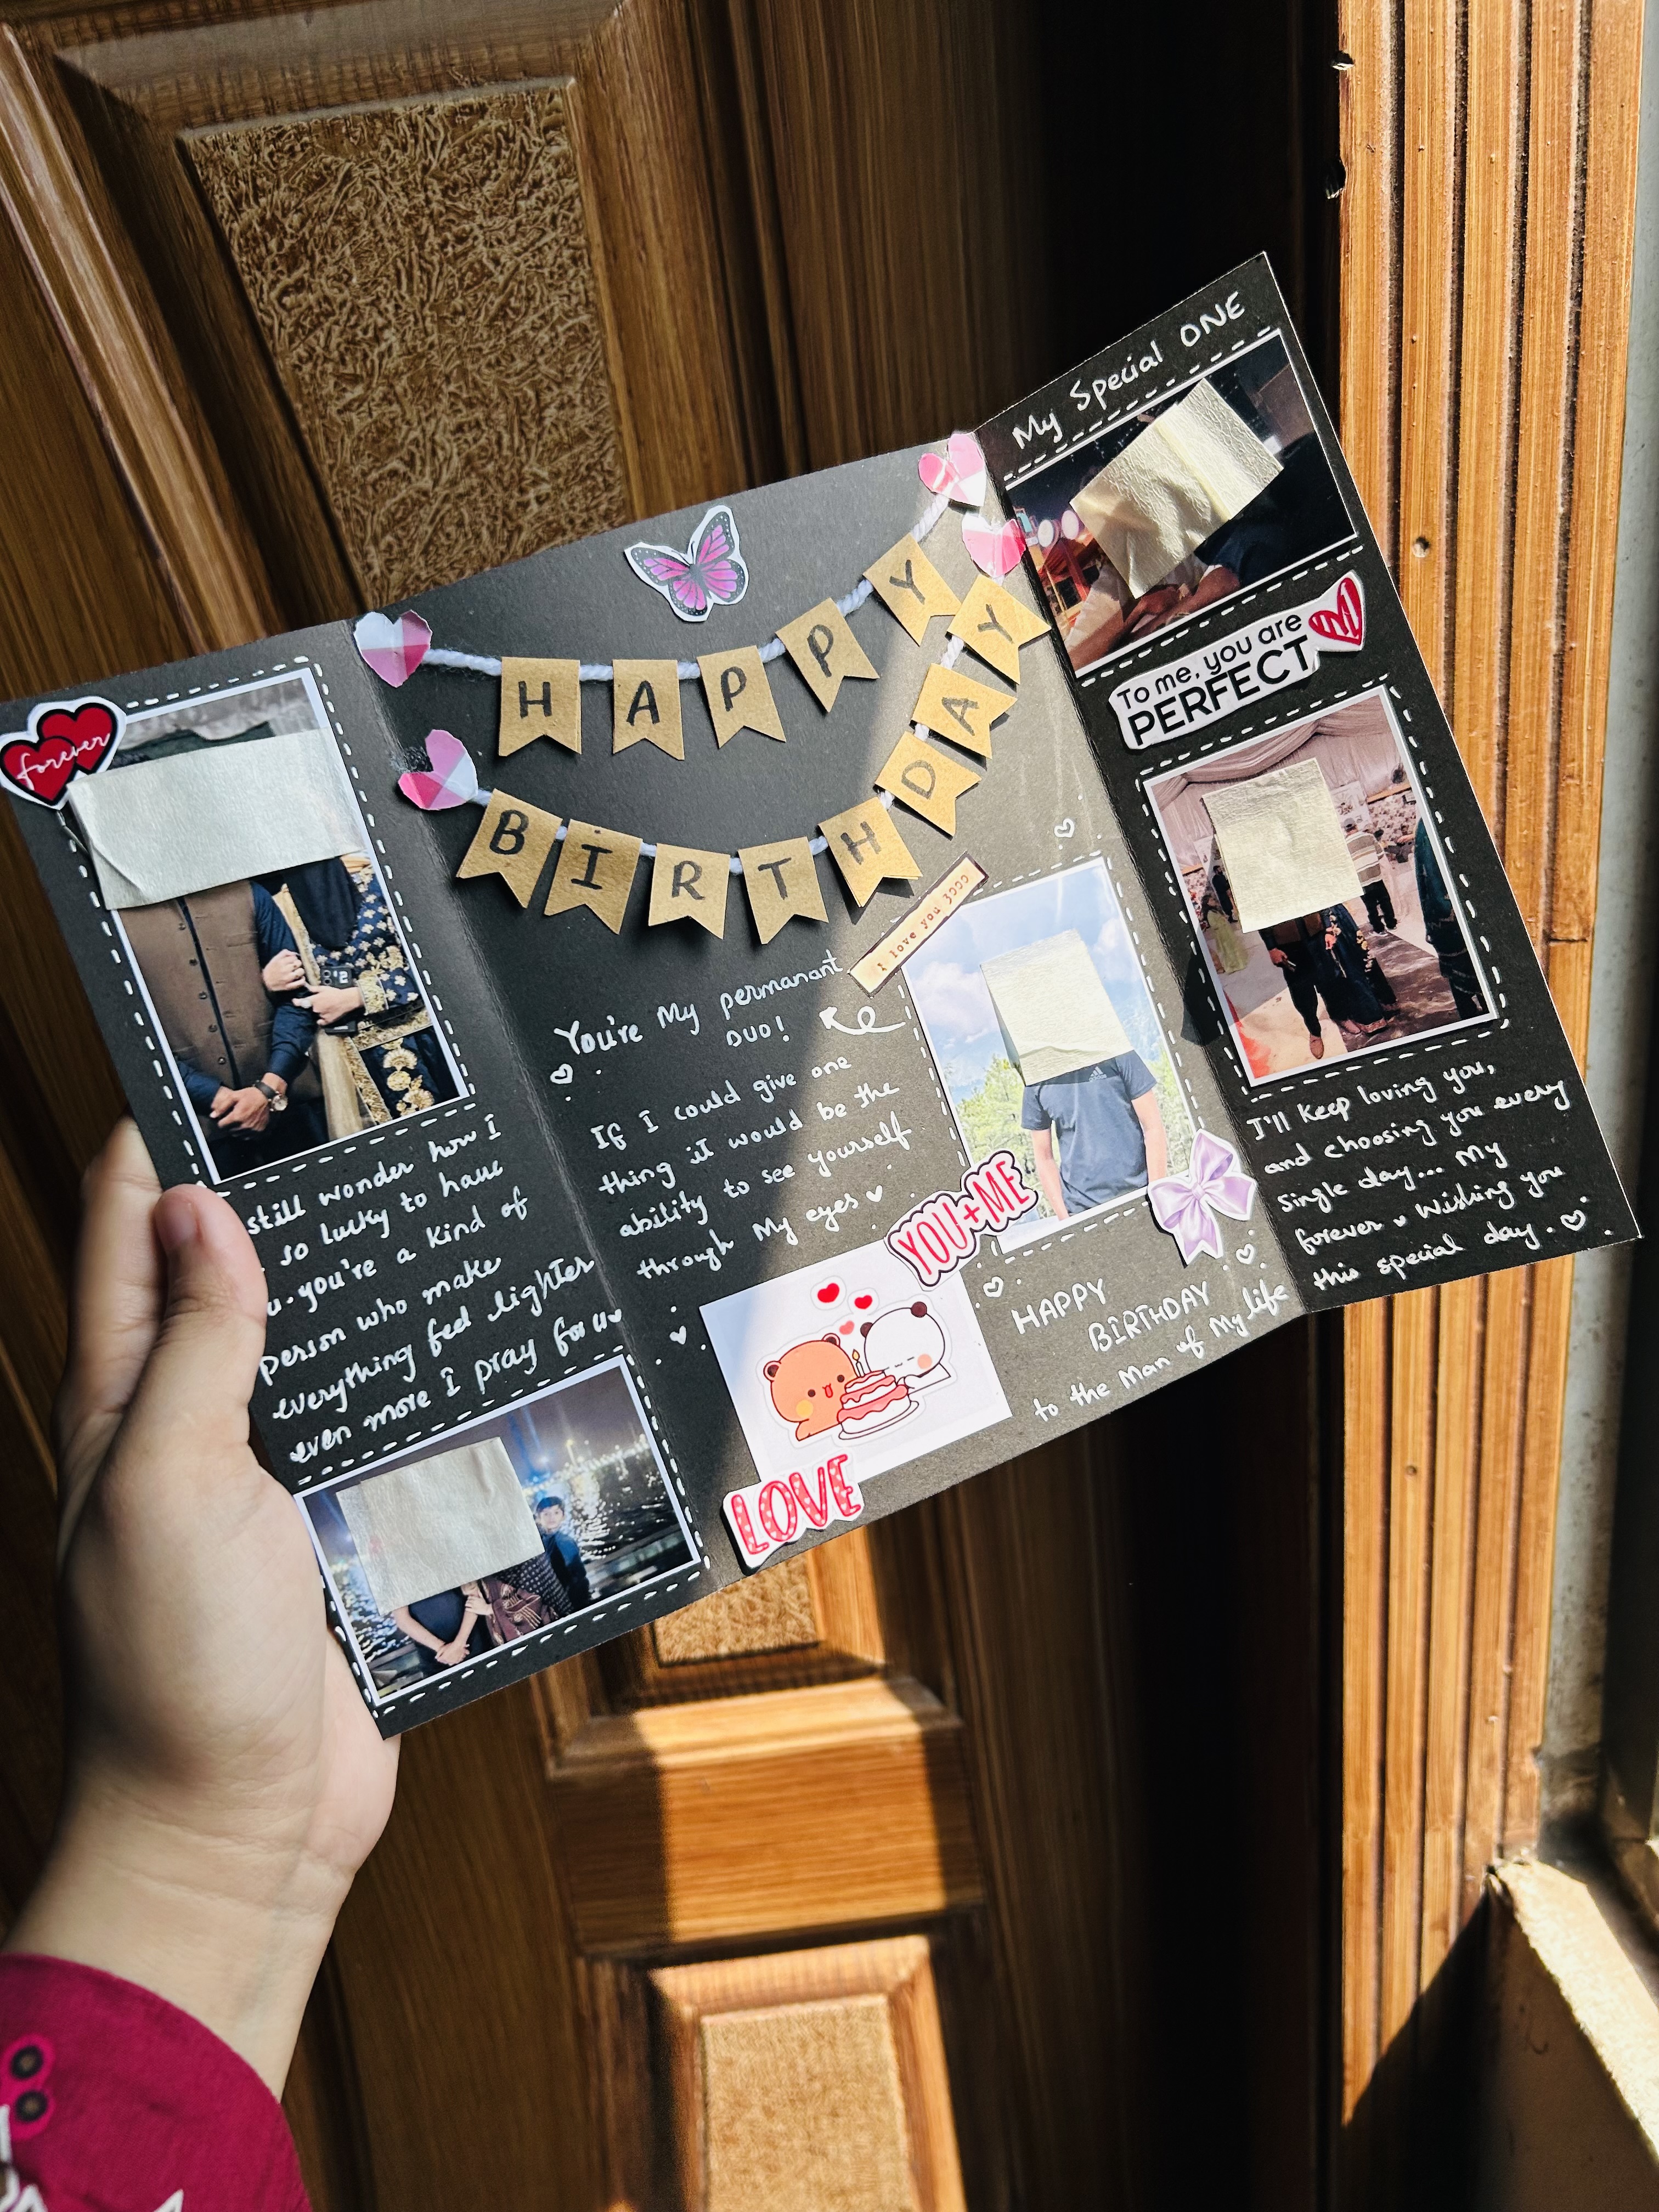 forever
still wonder how I
so lucky to have
u. you're a kind of
person who make
everything feel lighter
even more I pray for u
HAPPY
BIRTHDAY
I love you 3000
You're My permanant
DUO!
If I could give one
thing it would be the
ability to see yourself
through My eyes
YOU+ME
LOVE
HAPPY
BIRTHDAY
to the Man of My life
My Special ONE
To me, you are
PERFECT
I'll keep loving you,
and choosing you every
single day... My
forever Wishing you
this special day.